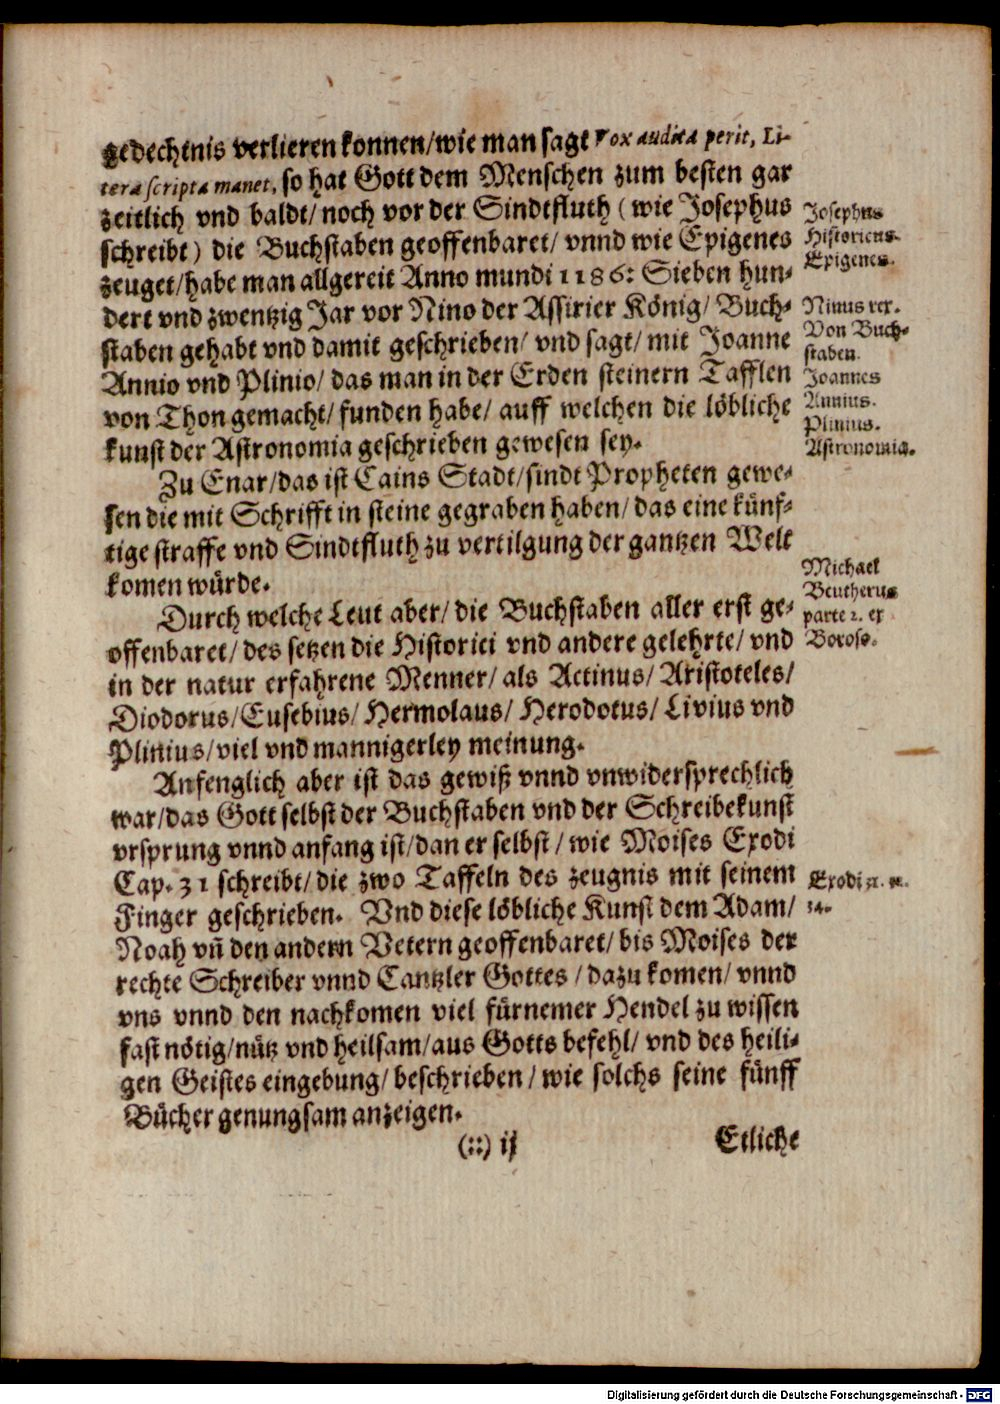 gedechtnis verlieren konnen/wie man sagt Vox audita perit, Li-
tera scripta manet, so hat Gott dem Menschen zum besten gar
zeitlich vnd baldt/ noch vor der Sindtfluth (wie Josephus
schreibt) die Buchstaben geoffenbaret/ vnnd wie Epigenes
zeuget/habe man allgereit Anno mundi 1186: Sieben hun-
dert vnd zwentzig Jar vor Nino der Assirier König/ Buch-
staben gehabt vnd damit geschrieben/ vnd sagt/ mit Joanne
Annio vnd Plinio/ das man in der Erden steinern Tafflen
von Thon gemacht/ funden habe/ auff welchen die löbliche
kunst der Astronomia geschrieben gewesen sey.
Zu Enar/das ist Cains Stadt/sindt Propheten gewe-
sen die mit Schrifft in steine gegraben haben/ das eine künf-
tige straffe vnd Sindtfluth zu vertilgung der gantzen Welt
komen würde.
Durch welche Leut aber/ die Buchstaben aller erst ge-
offenbaret/ des setzen die Historici vnd andere gelehrte/ vnd
in der natur erfahrene Menner/ als Actinus/ Aristoteles/
Diodorus/Eusebius/ Hermolaus/ Herodotus/ Livius vnd
Plinius/viel vnd mannigerley meinung.
Anfenglich aber ist das gewiß vnnd vnwidersprechlich
war/das Gott selbst der Buchstaben vnd der Schreibekunst
vrsprung vnnd anfang ist/dan er selbst/ wie Moises Exodi
Cap. 31 schreibt/ die zwo Taffeln des zeugnis mit seinem
Finger geschrieben. Vnd diese löbliche Kunst dem Adam/
Noah vn̄ den andern Vetern geoffenbaret/ bis Moises der
rechte Schreiber vnnd Cantzler Gottes/ dazu komen/ vnnd
vns vnnd den nachkomen viel fürnemer Hendel zu wissen
fast nötig/nütz vnd heilsam/aus Gotts befehl/ vnd des heili-
gen Geistes eingebung/ beschrieben/ wie solchs seine fünff
Bücher genungsam anzeigen.
(::) ij
Etliche
Josephus
Historicus.
Epigenes.
Ninus rex.
Von Buch-
staben.
Joannes
Annius.
Plinius.
Astronomia.
Michael
Beutherus
parte 2. ex
Boroso.
Exodi 31.
34.
Digitalisierung gefördert durch die Deutsche Forschungsgemeinschaft - DFG